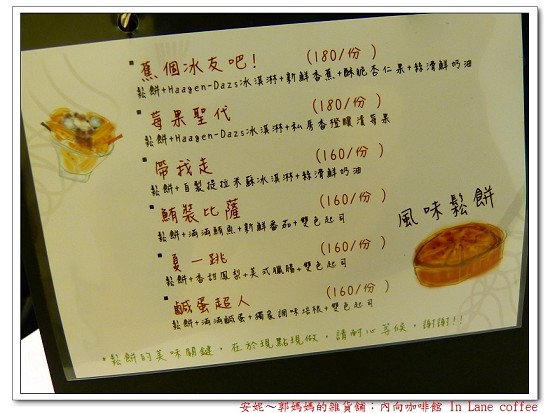 蕉個冰友吧! (180/份)
鬆餅+Haagen-Dazs冰淇淋+新鮮香蕉+酥脆杏仁果+綿滑鮮奶油
莓果聖代 (180/份)
鬆餅+Haagen-Dazs冰淇淋+私房香橙釀漬莓果
帶我走 (160/份)
鬆餅+自製提拉米蘇冰淇淋+綿滑鮮奶油
鮪裝比薩 (160/份)
鬆餅+滿滿鮪魚+新鮮番茄+雙色起司
夏一跳 (160/份)
鬆餅+香甜鳳梨+美式臘腸+雙色起司
鹹蛋超人 (160/份)
鬆餅+滿滿鹹蛋+獨家調味培根+雙色起司
風味鬆餅
*鬆餅的美味關鍵,在於現點現做,請耐心等候,謝謝!!
安妮~郭媽媽的雜貨舖:內向咖啡館 In Lane coffee